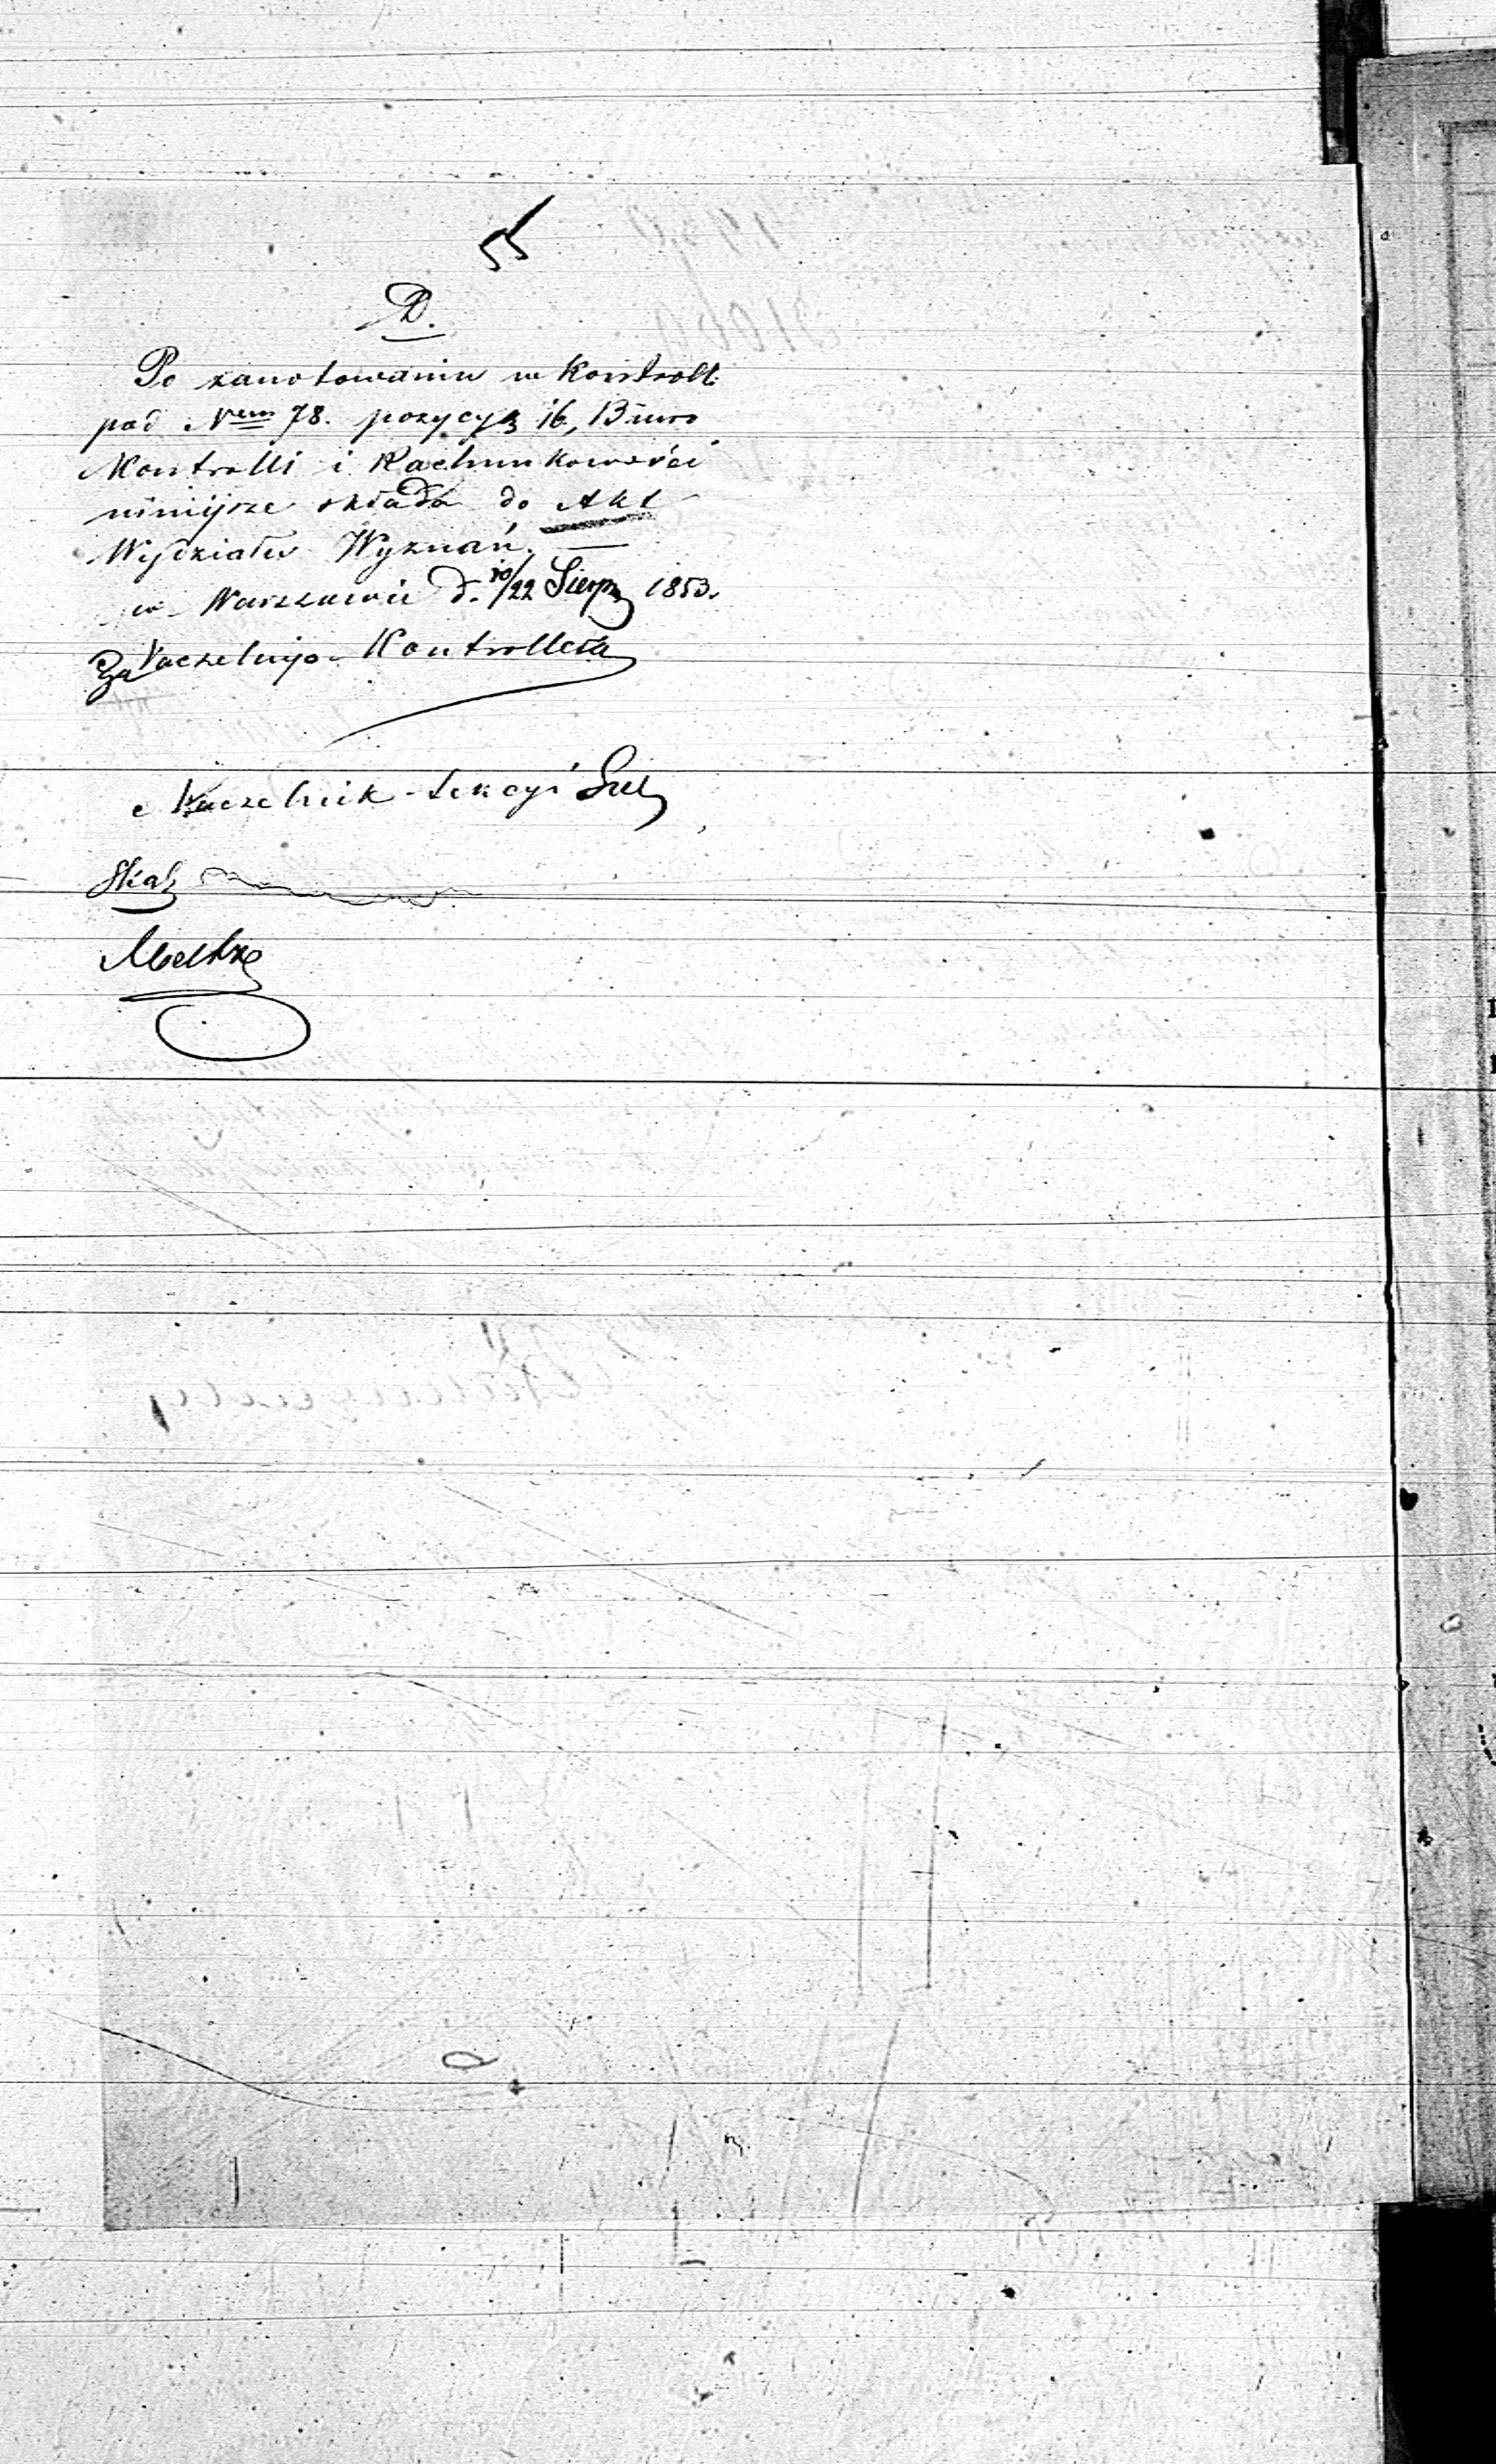 D.
Po zanotowaniu w Kontroll.
pod Nem 78. pozycyą 16, Biuro
Kontrolli i Rachunkowości
niniejsze składa do Akt
Wydziału Wyznań.
w Warszawie d. 10/22 Sierp 1853.
Za Naczelnego Kontrollera
Naczelnik Sekcyi